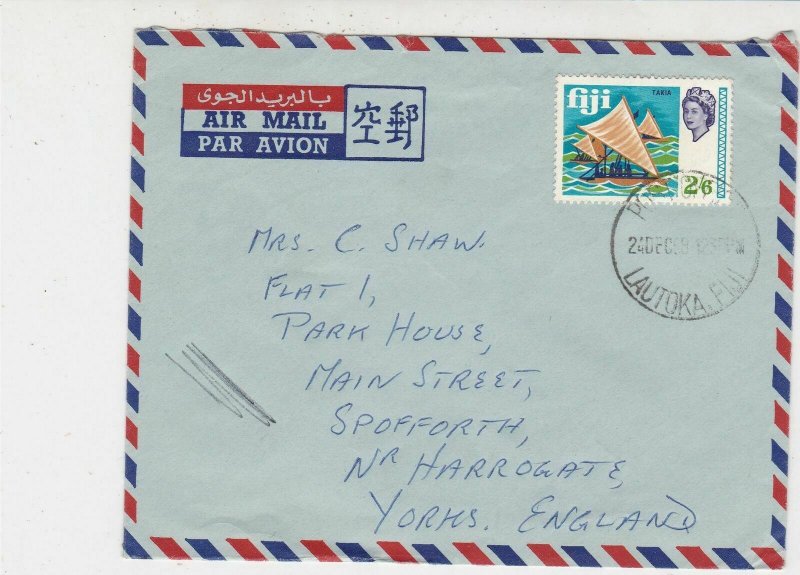 بالبريد الجوى
AIR MAIL
PAR AVION
郵
空
fiji
TAKIA
2/6
LAUTOKA, FIJI
MRS. C. SHAW.
FLAT 1,
PARK HOUSE,
MAIN STREET,
SPOFFORTH,
NR HARROGATE,
YORKS. ENGLAND